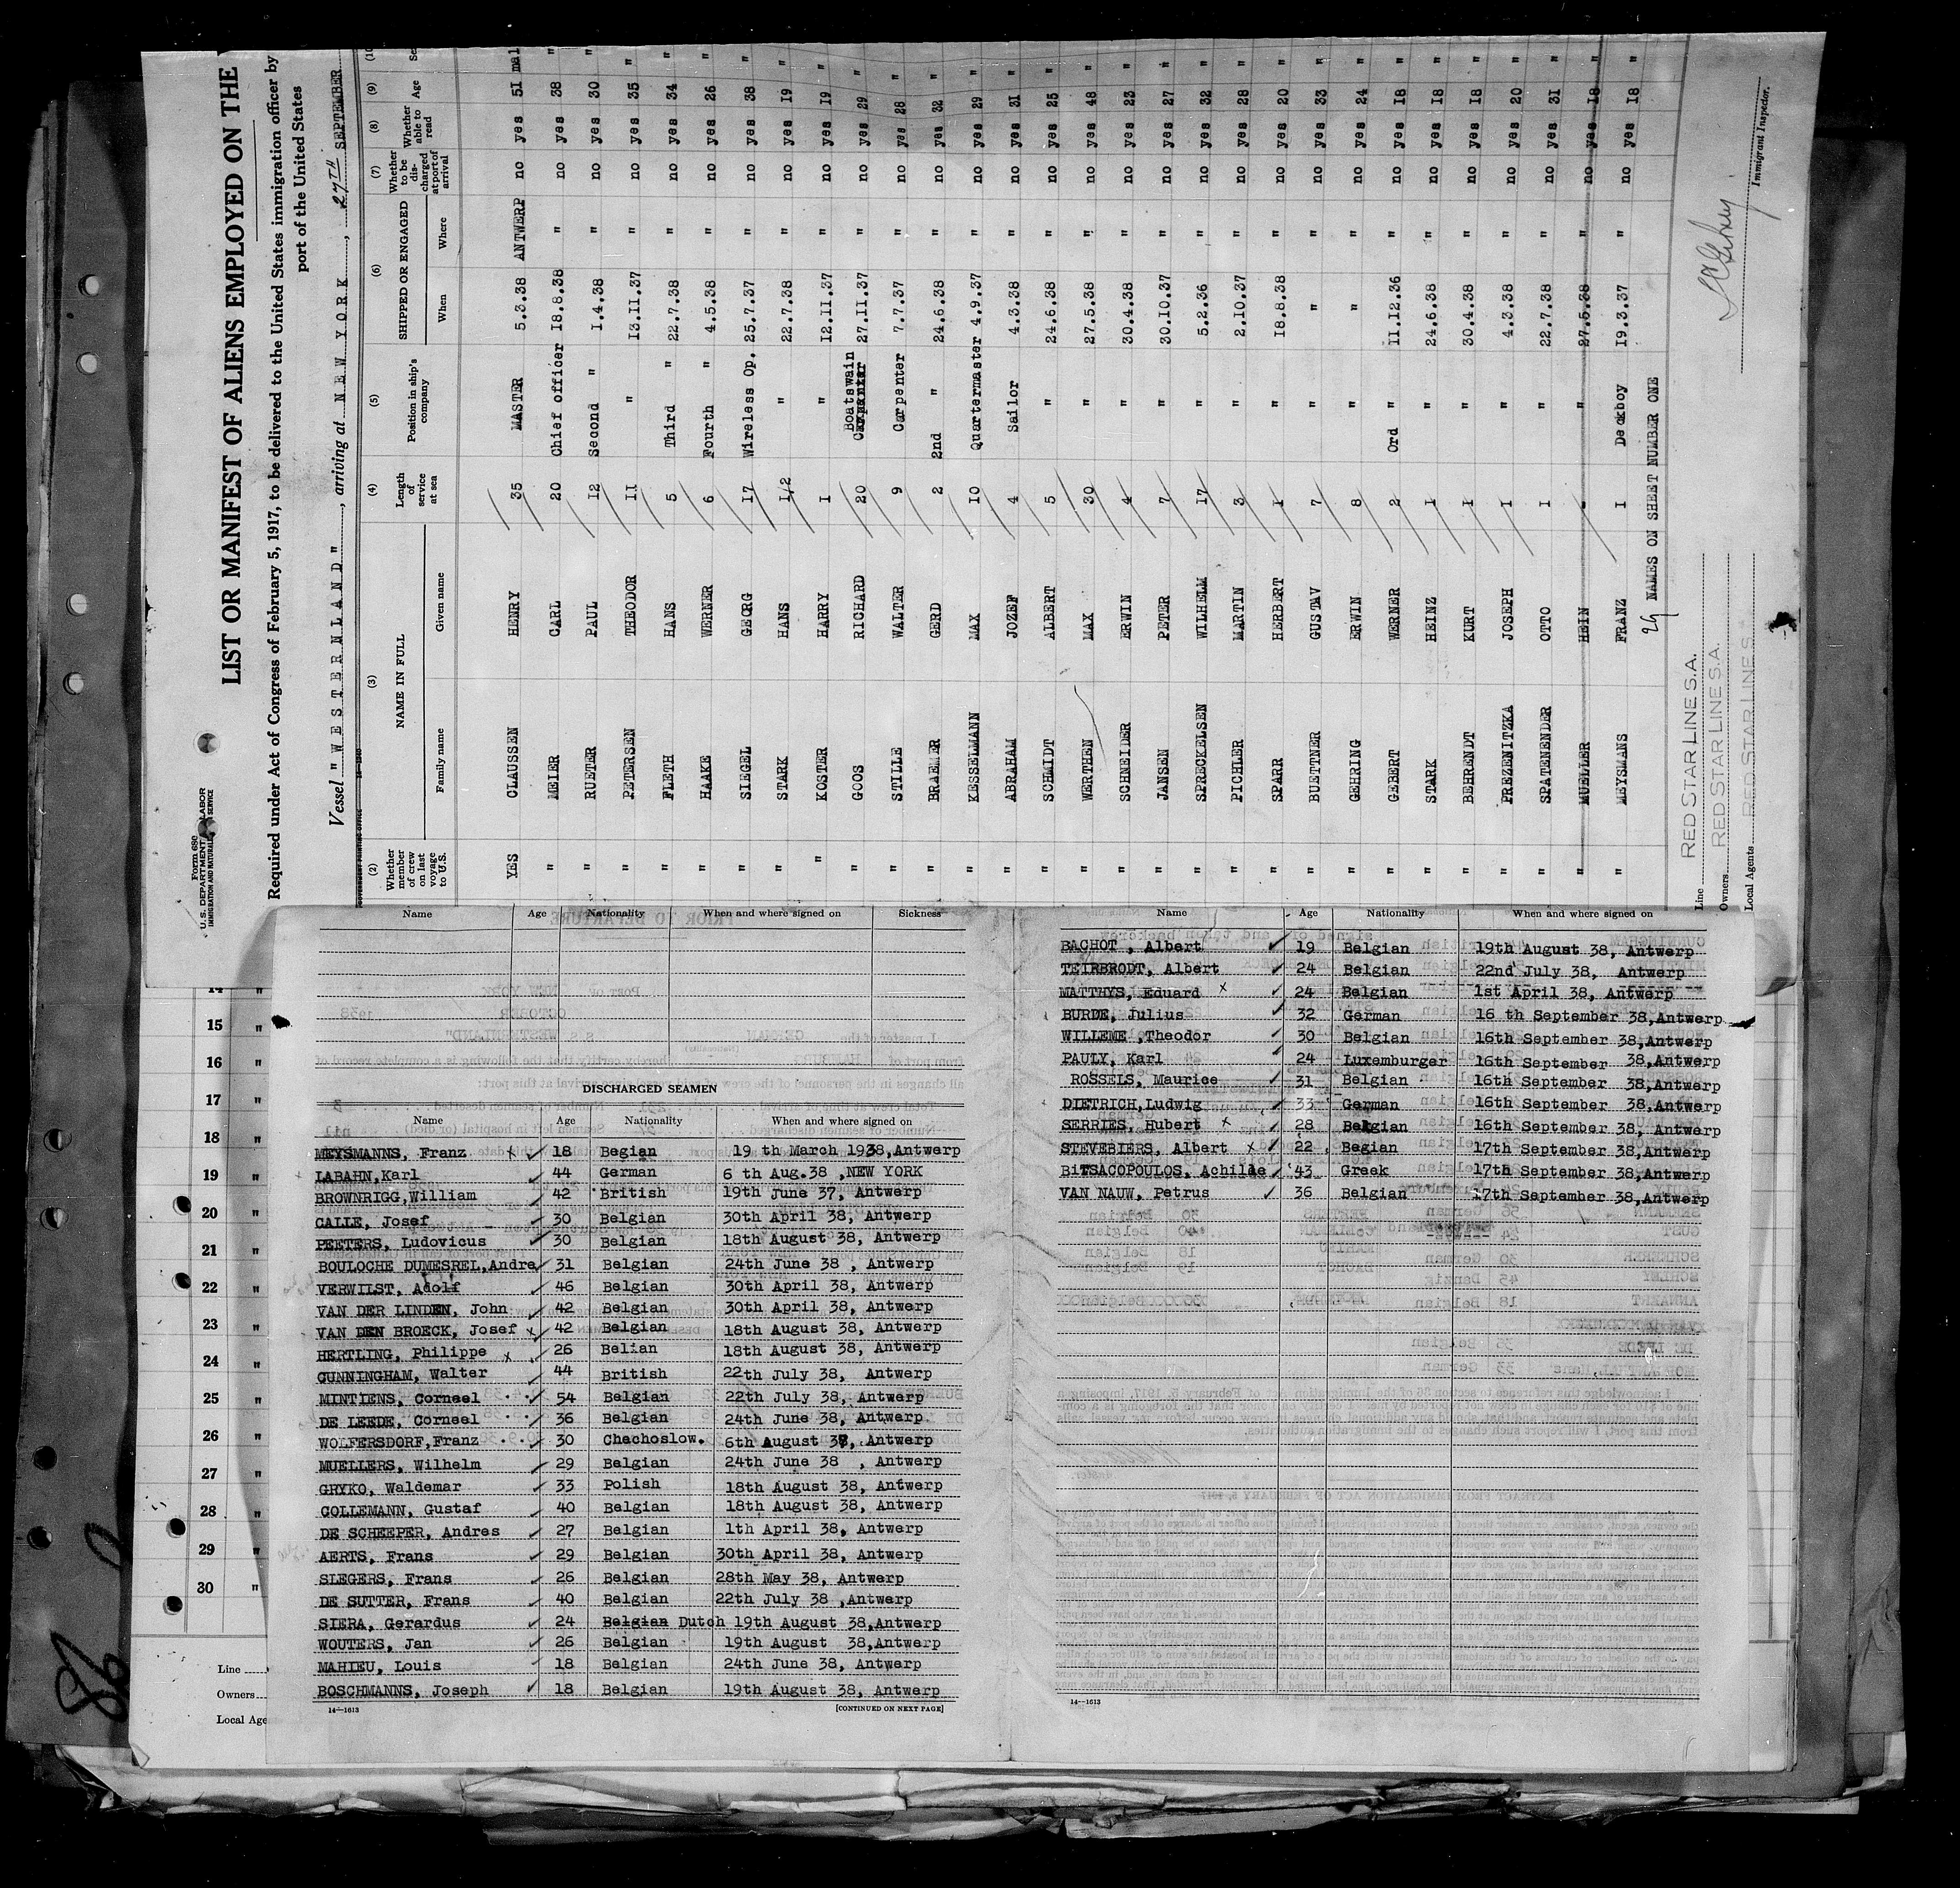 Form 680
U. S. DEPARTMENT LABOR
LIST OR MANIFEST OF ALIENS EMPLOYED ON THE
Required under Act of Congress of February 5, 1917, to be delivered to the United States immigration officer by
port of the United States
Vessel "WESTERNLAND", arriving at NEW YORK, 27TH SEPTEMBER
(2) Whether member of crew on last voyage to U.S. (3) NAME IN FULL Family name Given name (4) Length of service at sea (5) Position in ship's company (6) SHIPPED OR ENGAGED When Where (7) Whether to be discharged at port of arrival (8) Whether able to read (9) Age
YES CLAUSSEN HENRY 35 MASTER 5.3.38 ANTWERP no yes 51 mal
" MEIER CARL 20 Chief officer 18.8.38 " no yes 38 "
" RUETER PAUL 12 Second " 1.4.38 " no yes 30 "
" PETERSEN THEODOR 11 " 13.11.37 " no yes 35 "
" FLETH HANS 5 Third " 22.7.38 " no yes 34 "
" HAAKE WERNER 6 Fourth " 4.5.38 " no yes 26 "
" SIEGEL GEORG 17 Wireless Op. 25.7.37 " no yes 38 "
" STARK HANS 1/2 " 22.7.38 " no yes 19 "
" KOSTER HARRY 1 " 12.11.37 " no yes 19 "
" GOOS RICHARD 20 Boatswain 27.11.37 " no yes 29 "
" STILLE WALTER 9 Carpenter 7.7.37 " no yes 28 "
" BRAEMER GERD 2 2nd " 24.6.38 " no yes 32 "
" KESSELMANN MAX 10 Quartermaster 4.9.37 " no yes 29 "
" ABRAHAM JOZEF 4 Sailor 4.3.38 " no yes 31 "
" SCHMIDT ALBERT 5 " 24.6.38 " no yes 25 "
" WERTHEN MAX 30 " 27.5.38 " no yes 48 "
" SCHNEIDER ERWIN 4 " 30.4.38 " no yes 23 "
" JANSEN PETER 7 " 30.10.37 " no yes 27 "
" SPRECKELSEN WILHELM 17 " 5.2.36 " no yes 32 "
" PICHLER MARTIN 3 " 2.10.37 " no yes 28 "
" SPARR HERBERT 1 " 18.8.38 " no yes 20 "
" BUETTNER GUSTAV 7 " " " no yes 33 "
" GEHRING ERWIN 8 " " " no yes 24 "
" GEBERT WERNER 2 Ord " 11.12.36 " no yes 18 "
" STARK HEINZ 1 " 24.6.38 " no yes 18 "
" BEHRENDT KURT 1 " 30.4.38 " no yes 18 "
" PREZENITZKA JOSEPH 1 " 4.3.38 " no yes 20 "
" SPATENENDER OTTO 1 " 22.7.38 " no yes 31 "
" MUELLER HEIN " 27.5.38 " no yes 18 "
" MEYSMANS FRANZ 1 Deckboy 19.3.37 " no yes 18 "
29 NAMES ON SHEET NUMBER ONE
Line RED STAR LINE S.A.
Owners RED STAR LINE S.A.
Local Agents RED STAR LINE S.A.
Immigrant Inspector.
Name Age Nationality When and where signed on Sickness
DISCHARGED SEAMEN
Name Age Nationality When and where signed on
MEYSMANNS, Franz x 18 Begian 19 th March 1938, Antwerp
LABAHN, Karl 44 German 6 th Aug.38 ,NEW YORK
BROWNRIGG, William 42 British 19th June 37, Antwerp
CALLE, Josef 30 Belgian 30th April 38, Antwerp
PEETERS, Ludovicus 30 Belgian 18th August 38, Antwerp
BOULOCHE DUMESREL, Andre 31 Belgian 24th June 38 , Antwerp
VERWILST, Adolf 46 Belgian 30th April 38, Antwerp
VAN DER LINDEN, John 42 Belgian 30th April 38, Antwerp
VAN DEN BROECK, Josef x 42 Belgian 18th August 38, Antwerp
HERTLING, Philippe x 26 Belian 18th August 38, Antwerp
CUNNINGHAM, Walter 44 British 22th July 38, Antwerp
MINTIENS, Corneel 54 Belgian 22th July 38, Antwerp
DE LEEDE, Corneel 36 Belgian 24th June 38, Antwerp
WOLFERSDORF, Franz 30 Chachoslow. 6th August 38, Antwerp
MUELLERS, Wilhelm 29 Belgian 24th June 38 , Antwerp
GRYKO, Waldemar 33 Polish 18th August 38, Antwerp
COLLEMANN, Gustaf 40 Belgian 18th August 38, Antwerp
DE SCHEEPER, Andres 27 Belgian 1th April 38, Antwerp
AERTS, Frans 29 Belgian 30th April 38, Antwerp
SLEGERS, Frans 26 Belgian 28th May 38, Antwerp
DE SUTTER, Frans 40 Belgian 22th July 38 ,Antwerp
SIERA, Gerardus 24 Belgian Dutch 19th August 38,Antwerp
WOUTERS, Jan 26 Belgian 19th August 38,Antwerp
MAHIEU, Louis 18 Belgian 24th June 38, Antwerp
BOSCHMANNS, Joseph 18 Belgian 19th August 38, Antwerp
14—1613 [CONTINUED ON NEXT PAGE]
Name Age Nationality When and where signed on
BACHOT , Albert 19 Belgian 19th August 38, Antwerp
TEIRBRODT, Albert 24 Belgian 22nd July 38, Antwerp
MATTHYS, Eduard x 24 Belgian 1st April 38, Antwerp
BURDE, Julius 32 German 16 th September 38,Antwerp
WILLEME ,Theodor 30 Belgian 16th September 38,Antwerp
PAULY, Karl 24 Luxemburger 16th September 38,Antwerp
ROSSELS, Maurice 31 Belgian 16th September 38,Antwerp
DIETRICH,Ludwig 33 German 16th September 38,Antwerp
SERRIES, Hubert x 28 Belgian 16th September 38, Antwerp
STEVEBIERS, Albert x 22 Begian 17th September 38,Antwerp
BiTSACOPOULOS, Achilde 43 Greek 17th September 38,Antwerp
VAN NAUW, Petrus 36 Belgian 17th September 38,Antwerp
14—1613
14 "
15 "
16 "
17 "
18 "
19 "
20 "
21 "
22 "
23 "
24 "
25 "
26 "
27 "
28 "
29 "
30 "
Line
Owners
Local Age